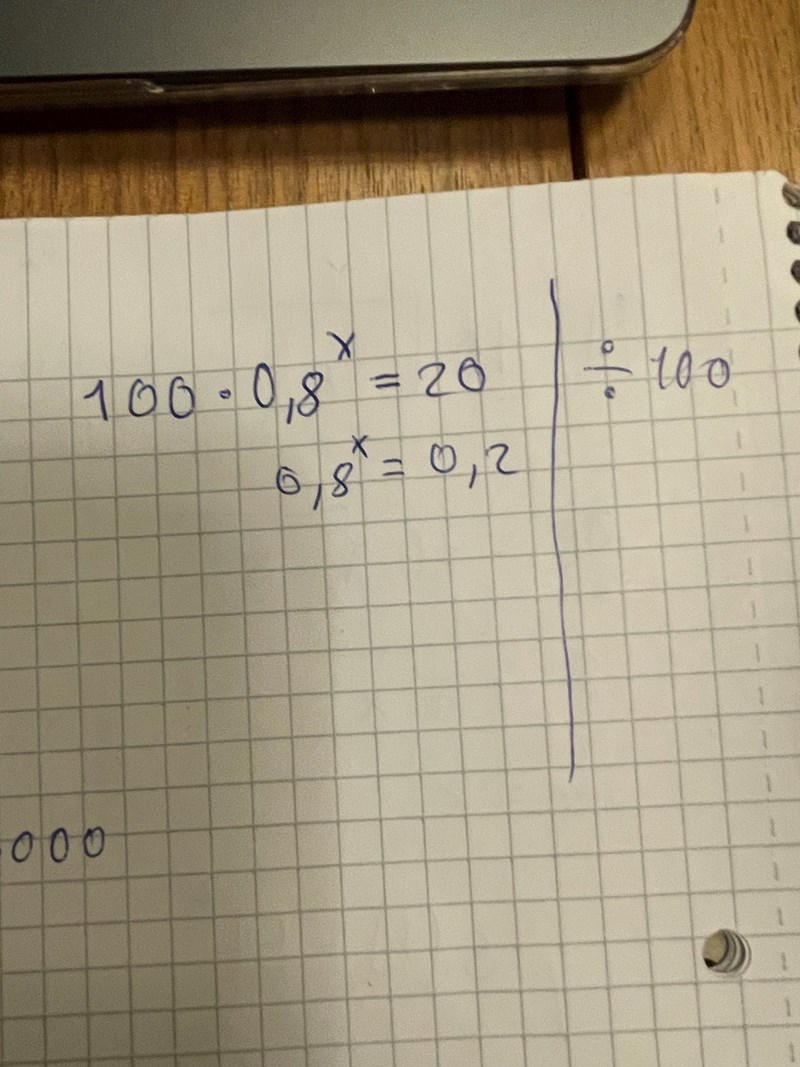 100 · 0,8ˣ = 20 | ÷ 100
0,8ˣ = 0,2
000